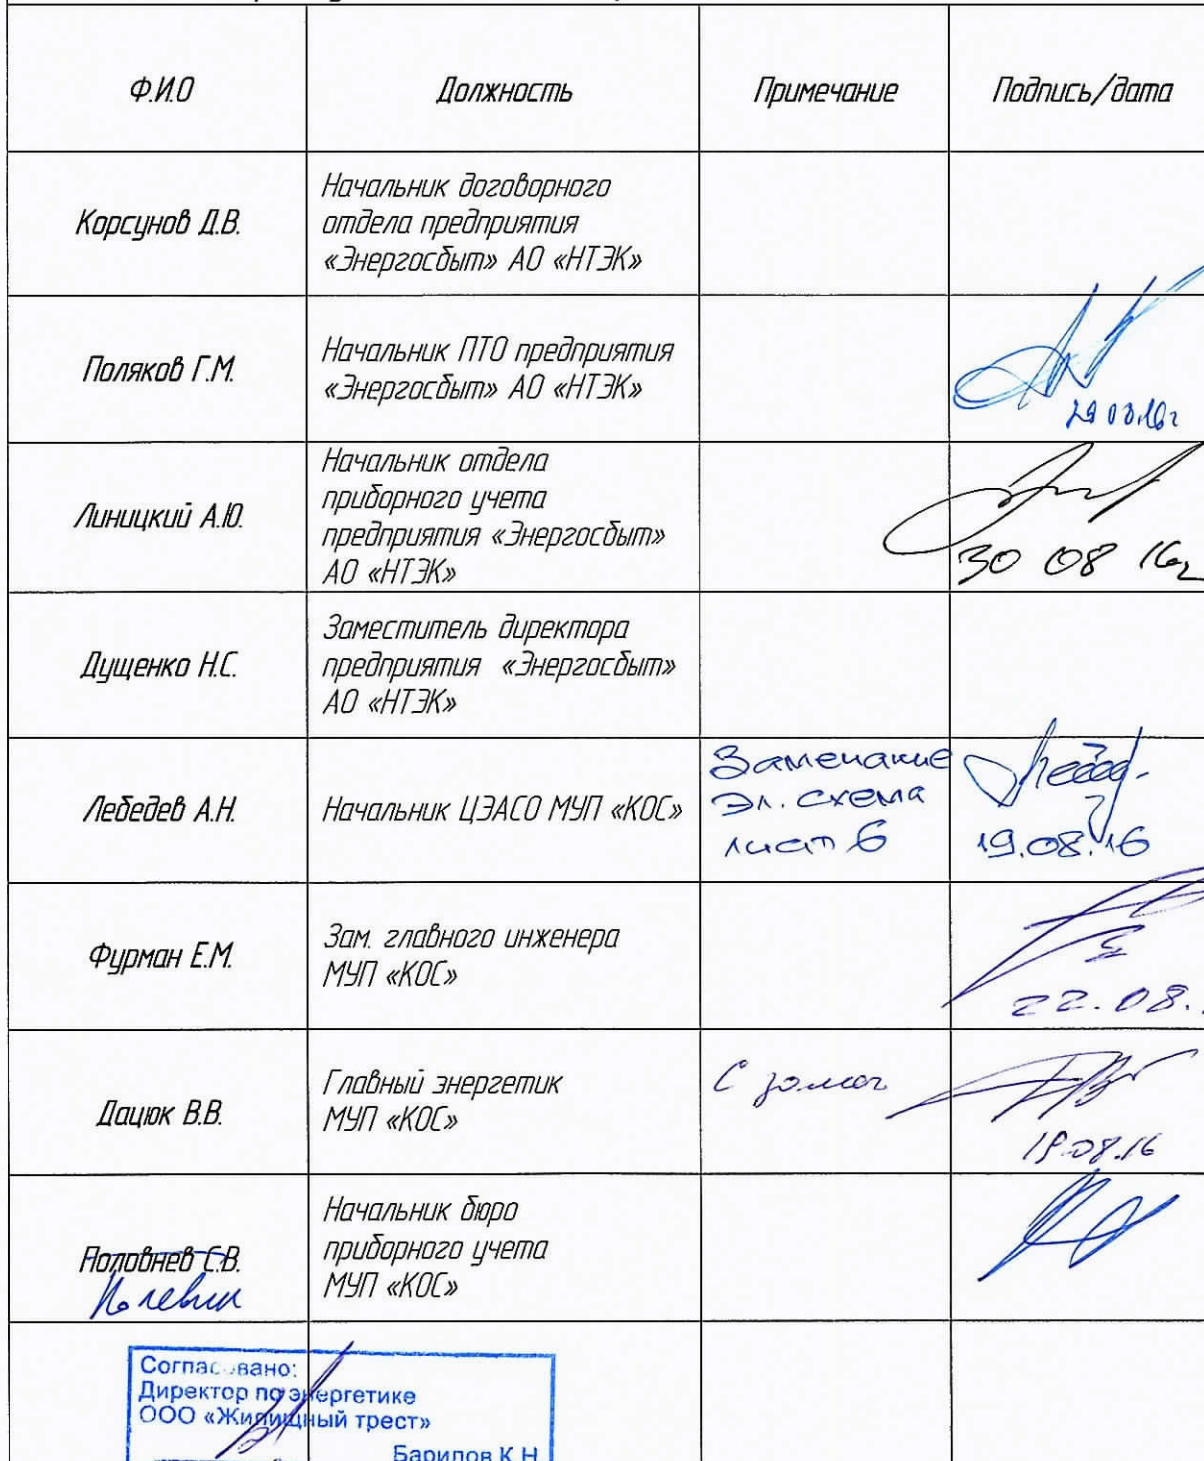 Ф.И.О
Должность
Примечание
Подпись/дата
Корсунов Д.В.
Начальник договорного
отдела предприятия
«Энергосбыт» АО «НТЭК»
Поляков Г.М.
Начальник ПТО предприятия
«Энергосбыт» АО «НТЭК»
29 08.16г
Линицкий А.Ю.
Начальник отдела
приборного учета
предприятия «Энергосбыт»
АО «НТЭК»
30 08 16г
Дущенко Н.С.
Заместитель директора
предприятия «Энергосбыт»
АО «НТЭК»
Лебедев А.Н.
Начальник ЦЭАСО МУП «КОС»
Замечание
Эл. схема
лист 6
19.08.16
Фурман Е.М.
Зам. главного инженера
МУП «КОС»
22.08.
Дацюк В.В.
Главный энергетик
МУП «КОС»
С
19.08.16
Половнев С.В.
Начальник бюро
приборного учета
МУП «КОС»
Согласовано:
Директор по энергетике
ООО «Жилищный трест»
Барилов К.Н.